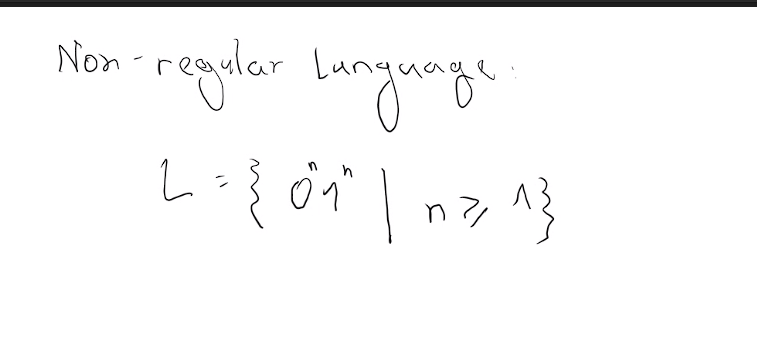 Non-regular Language:
L = { 0ⁿ1ⁿ | n ⩾ 1}